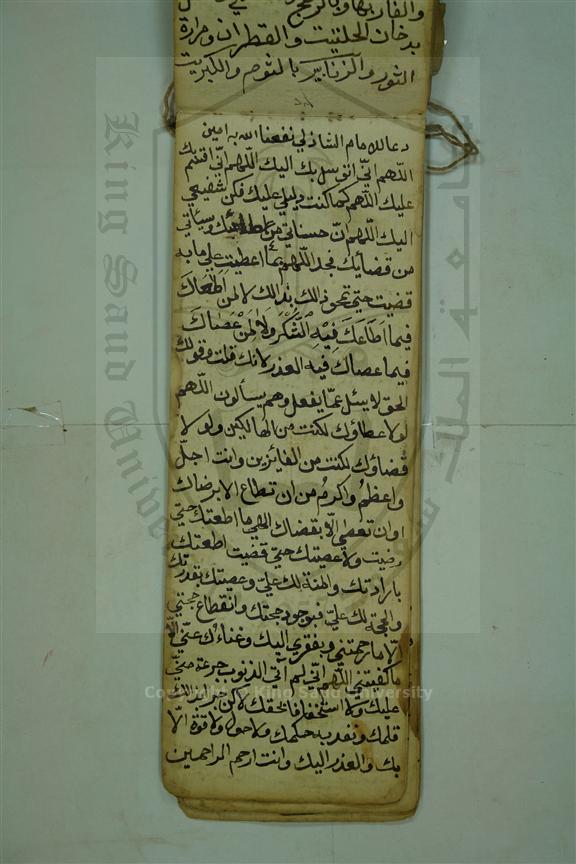 والفار بها وبالزنج
بدخان الحلتيت والقطران ومرارة
الثور والزنابير بالثوم والكبريت
دعا للامام الشاذلي نفعنا الله به امين
اللهم اني اتوسل بك اليك اللهم اني اقسم بك
عليك اللهم كما كنت دليلي عليك فكن شفيعي
اليك اللهم ان حسناتي من عطائك وسيأتي
من قضائك فجد اللهم بما اعطيت على ما به
قضيت حتى تمحو ذلك بذلك لا لمن اطاعك
فيما اطاعك فيه الشكر ولا لمن عصاك
فيما عصاك فيه العذر لانك قلت وقولك
الحق لا يسئل عما يفعل وهم يسألون اللهم
لولا عطاؤك لكنت من الهالكين ولولا
قضاؤك لكنت من الفائزين وانت اجل
واعظم واكرم من ان تطاع الا برضاك
او ان تعصى الا بقضاك الهي ما اطعتك حتى
رضيت ولا عصيتك حتى قضيت اطعتك
بارادتك والمنة لك علي وعصيتك بقدرتك
والحجة لك علي فبوجود حجتك وانقطاع حجتي
الا ما رحمتني وبفقري اليك وغناءك عني الا
ما كفيتني اللهم اني لم اتي الذنوب جرءة مني
عليك ولا استخفافا بحقك لاكن جرى بذلك
قلمك ونفد به حكمك ولا حول ولا قوة الا
بك والعذر اليك وانت ارحم الراحمين
King Saud University
جامعة الملك سعود
Copyright © King Saud University